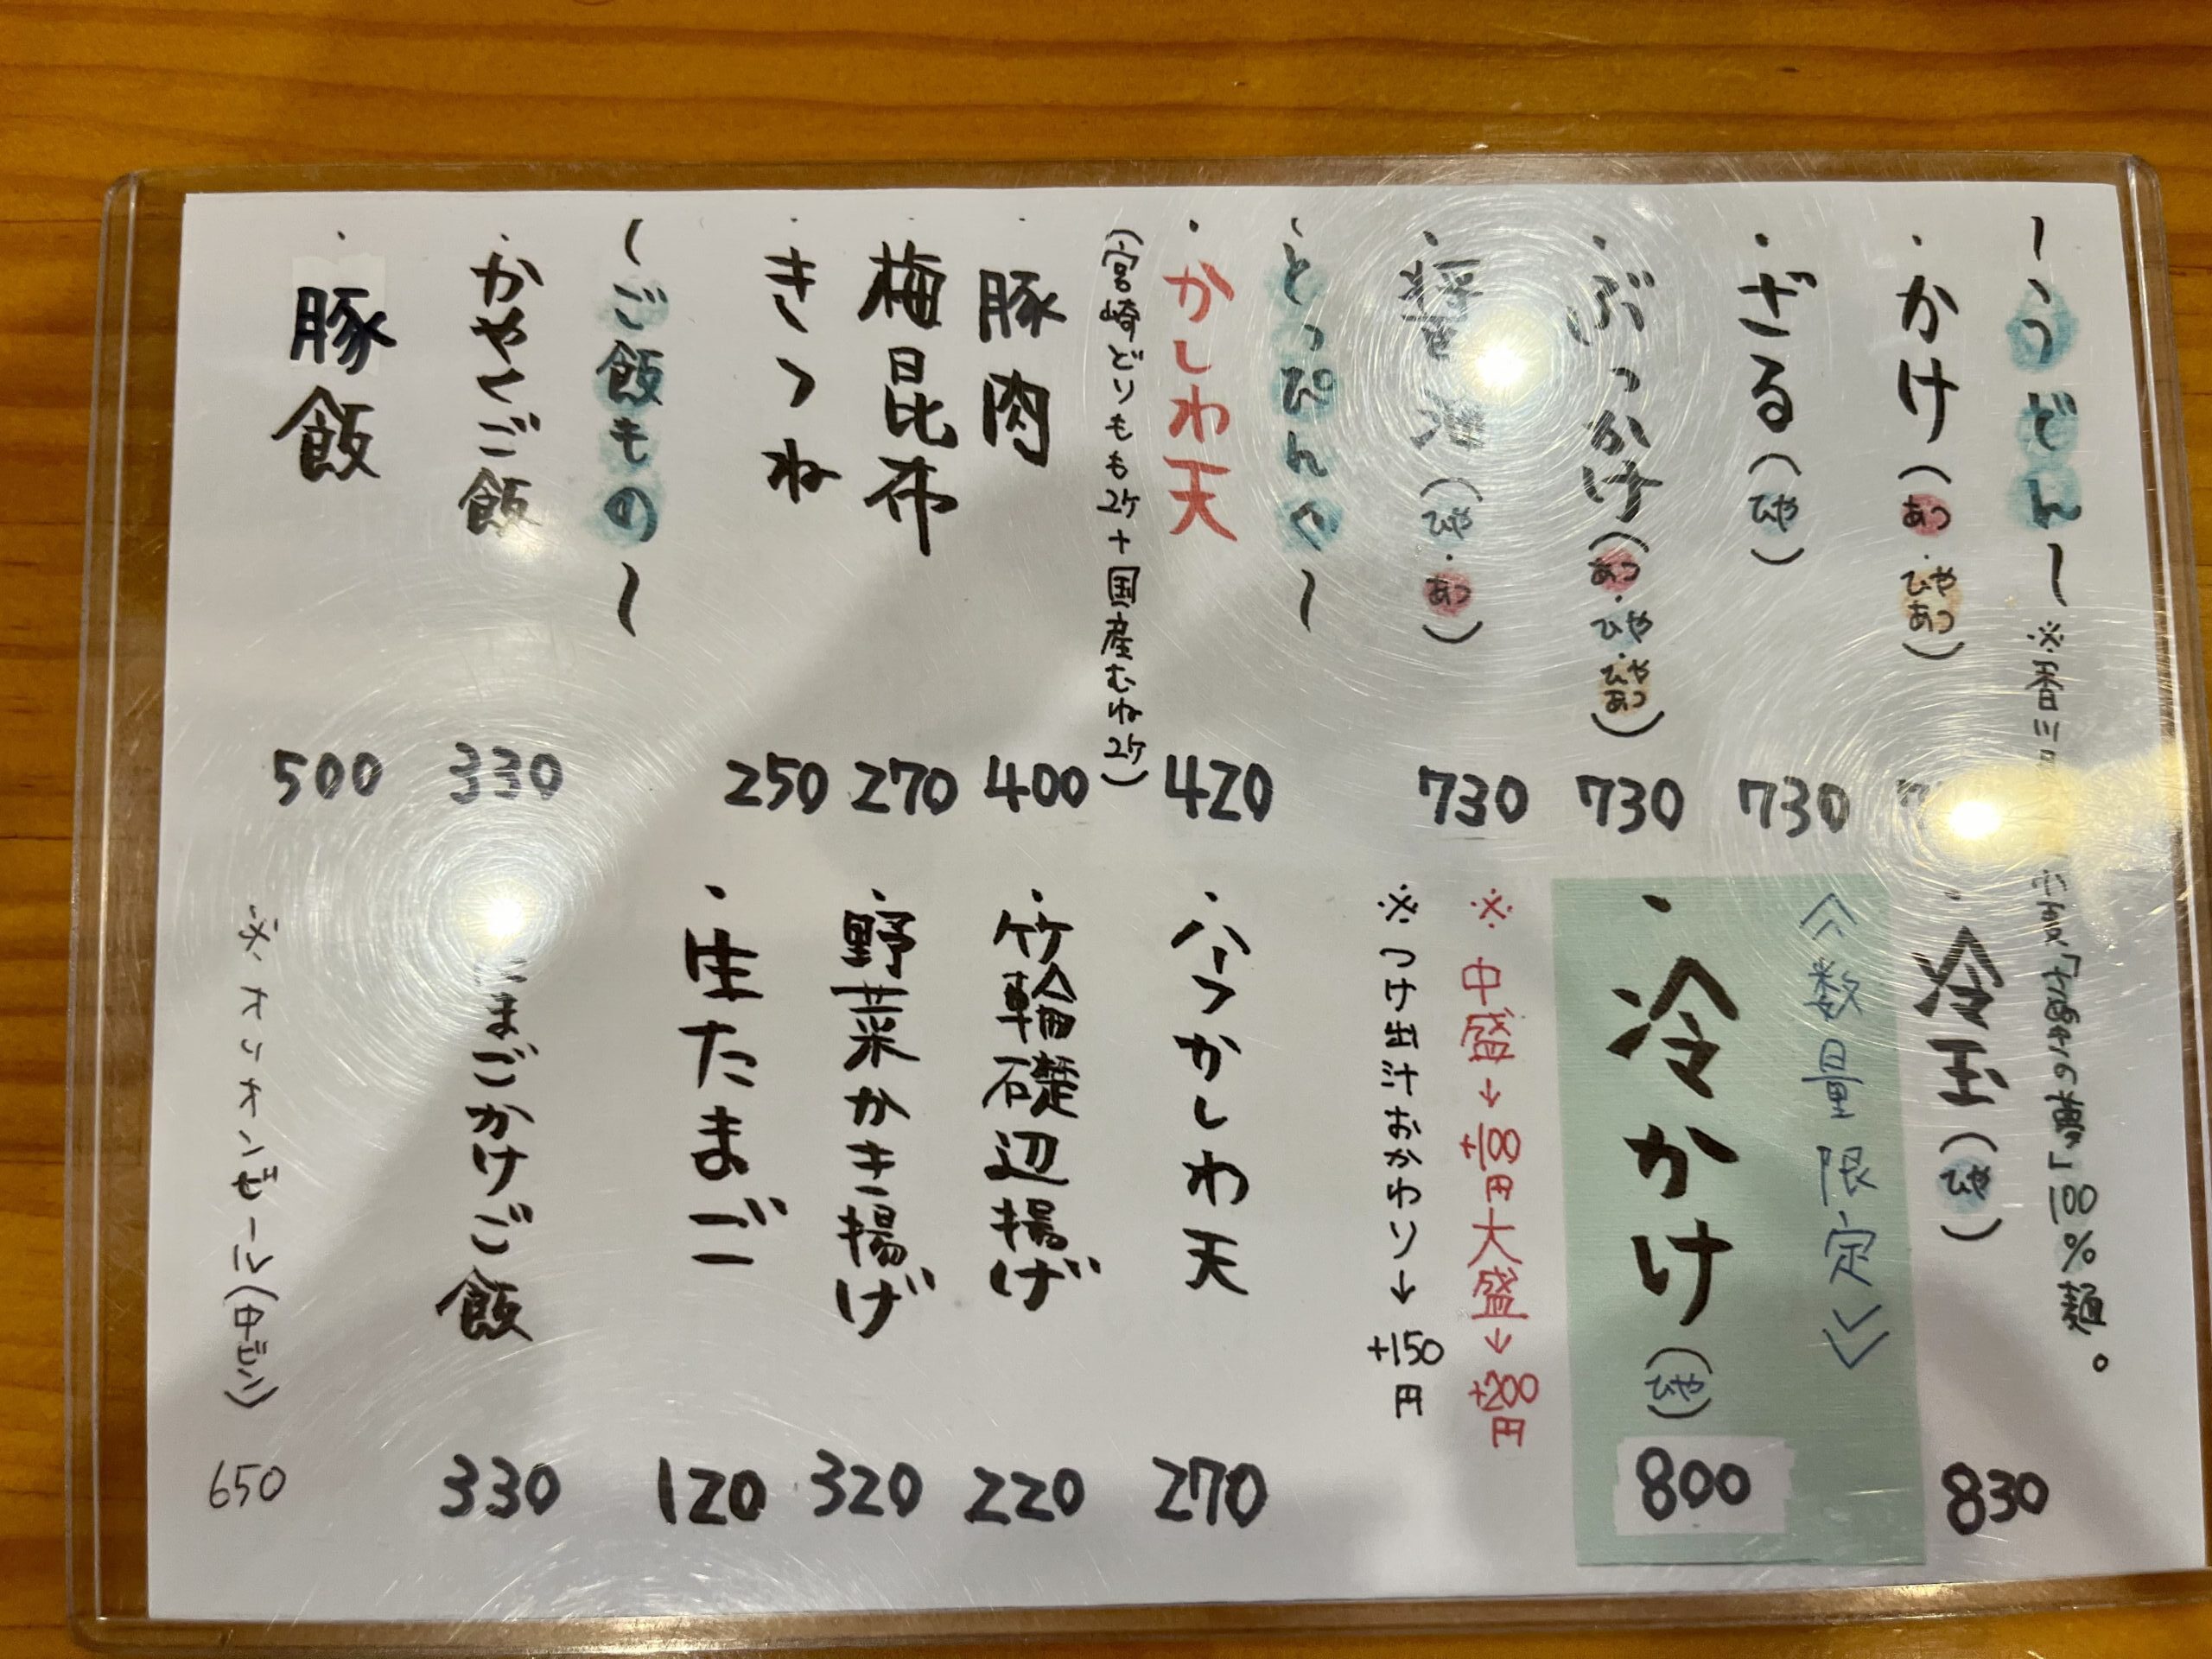 〜うどん〜 ※香川 「さぬきの夢」100%麺。
・かけ(あつ・ひやあつ)
・ざる(ひや) 730
・ぶっかけ(あつ・ひや・ひやあつ) 730
・醤油(ひや・あつ) 730
・冷玉(ひや) 830
《数量限定》
・冷かけ(ひや) 800
※中盛→+100円大盛→+200円
※つけ出汁おかわり→+150円
〜とっぴんぐ〜
・かしわ天 420
(宮崎どりもも2ケ+国産むね2ケ)
・豚肉 400
梅昆布 270
・きつね 250
・ハーフかしわ天 270
・竹輪礒辺揚げ 220
・野菜かき揚げ 320
・生たまご 120
〜ご飯もの〜
・かやくご飯 330
・豚飯 500
たまごかけご飯 330
※キリンビール(中ビン) 650